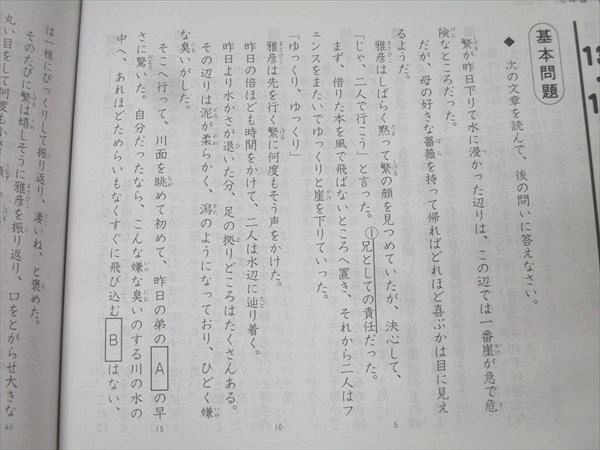 基本問題
◆ 次の文章を読んで、後の問いに答えなさい。
繁が昨日下りて水に浸かった辺りは、この辺では一番崖が急で危
険なところだった。
だが、母の好きな薔薇を持って帰ればどれほど喜ぶかは目に見え
るようだ。
雅彦はしばらく黙って繁の顔を見つめていたが、決心して、
「じゃ、二人で行こう」と言った。①兄としての責任だった。
まず、借りた本を風で飛ばないところへ置き、それから二人はフ
ェンスをまたいでゆっくりと崖を下りていった。
「ゆっくり、ゆっくり」
雅彦は先を行く繁に何度もそう声をかけた。
昨日の倍ほども時間をかけて、二人は水辺に辿り着く。
昨日より水かさが退いた分、足の拠りどころはたくさんある。
その辺りは泥が柔らかく、潟のようになっており、ひどく嫌
な臭いがした。
そこへ行って、川面を眺めて初めて、昨日の弟の A の早
さに驚いた。自分だったなら、こんな嫌な臭いのする川の水の
中へ、あれほどためらいもなくすぐに飛び込む B はない、
は一様にびっくりして振り返り、凄いね、と褒めた。
そのたびに繁は嬉しそうに雅彦を振り返り、口をとがらせ大きな
丸い目をして何度も小さく
5
10
15
40